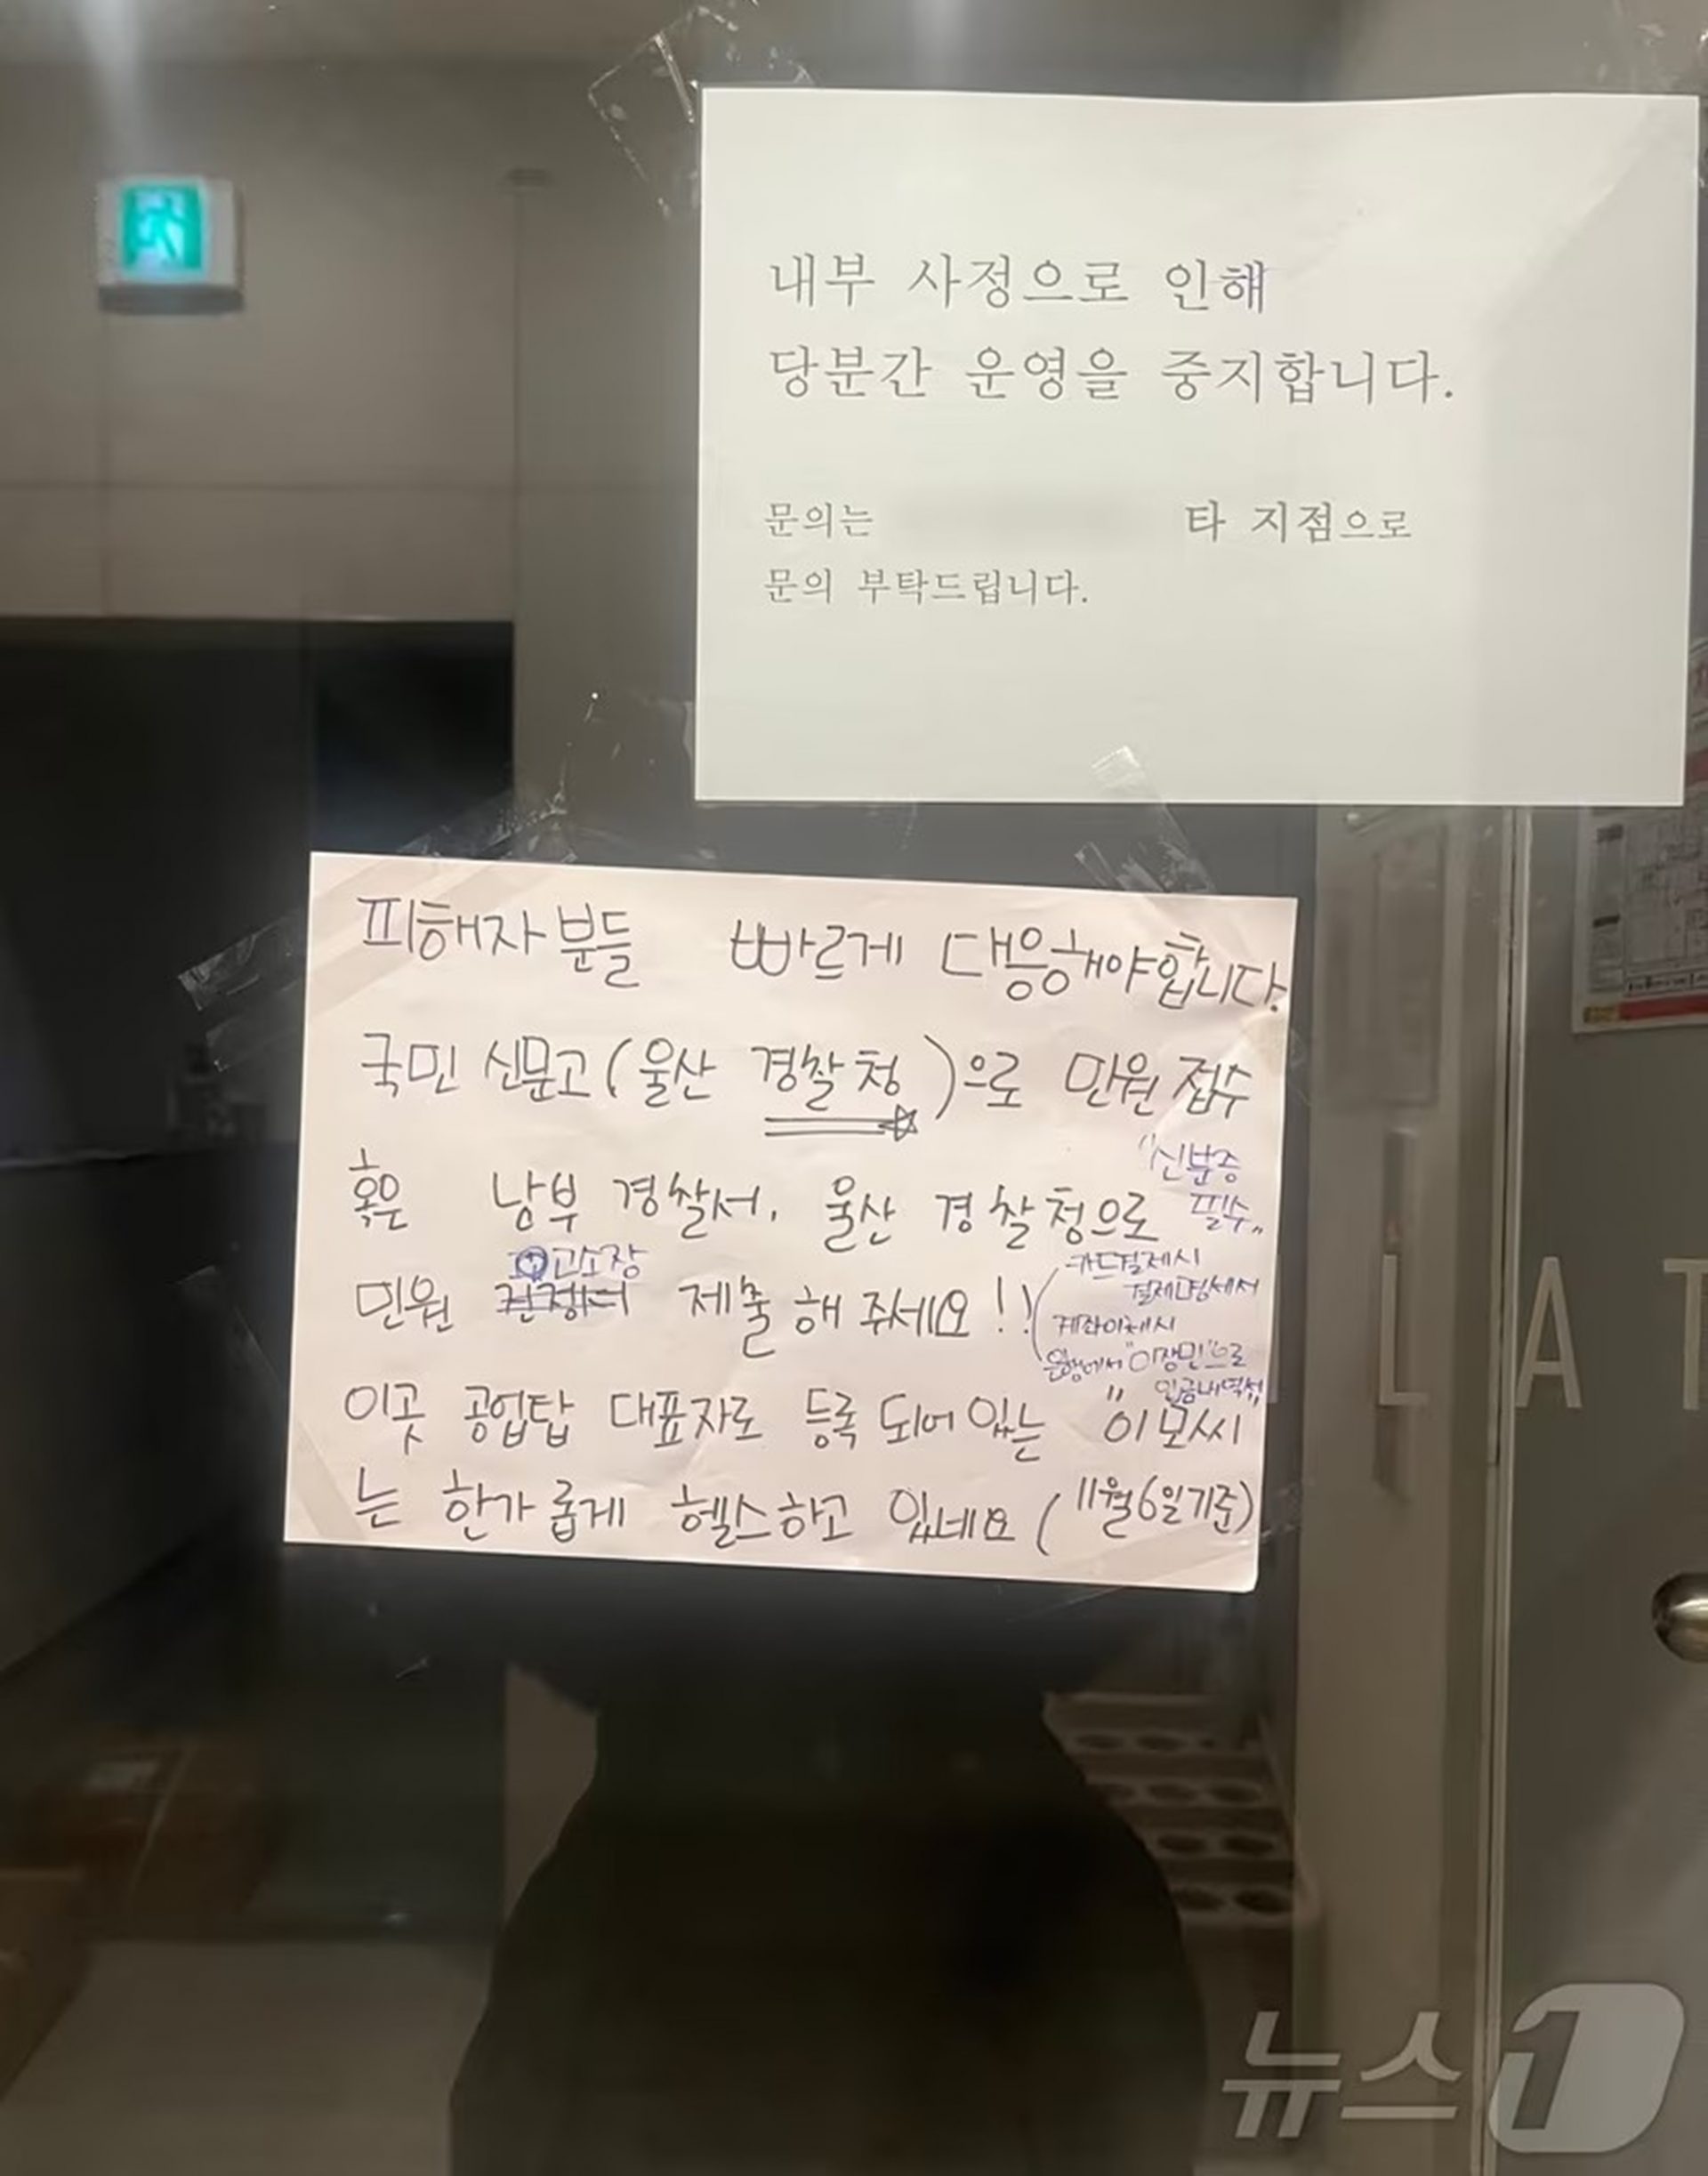 내부 사정으로 인해
당분간 운영을 중지합니다.
문의는 타 지점으로
문의 부탁드립니다.
피해자분들 빠르게 대응해야합니다.
국민 신문고(울산 경찰청)으로 민원 접수
혹은 남부 경찰서, 울산 경찰청으로
"신분증
필수"
고소장
민원 제출해주세요!!
카드결제시
결제명세서
계좌이체시
은행에서 "이장민"으로
입금내역서
이곳 공업탑 대표자로 등록 되어 있는 "이모씨"
는 한가롭게 헬스하고 있네요 (11월6일기준)
LAT
뉴스1